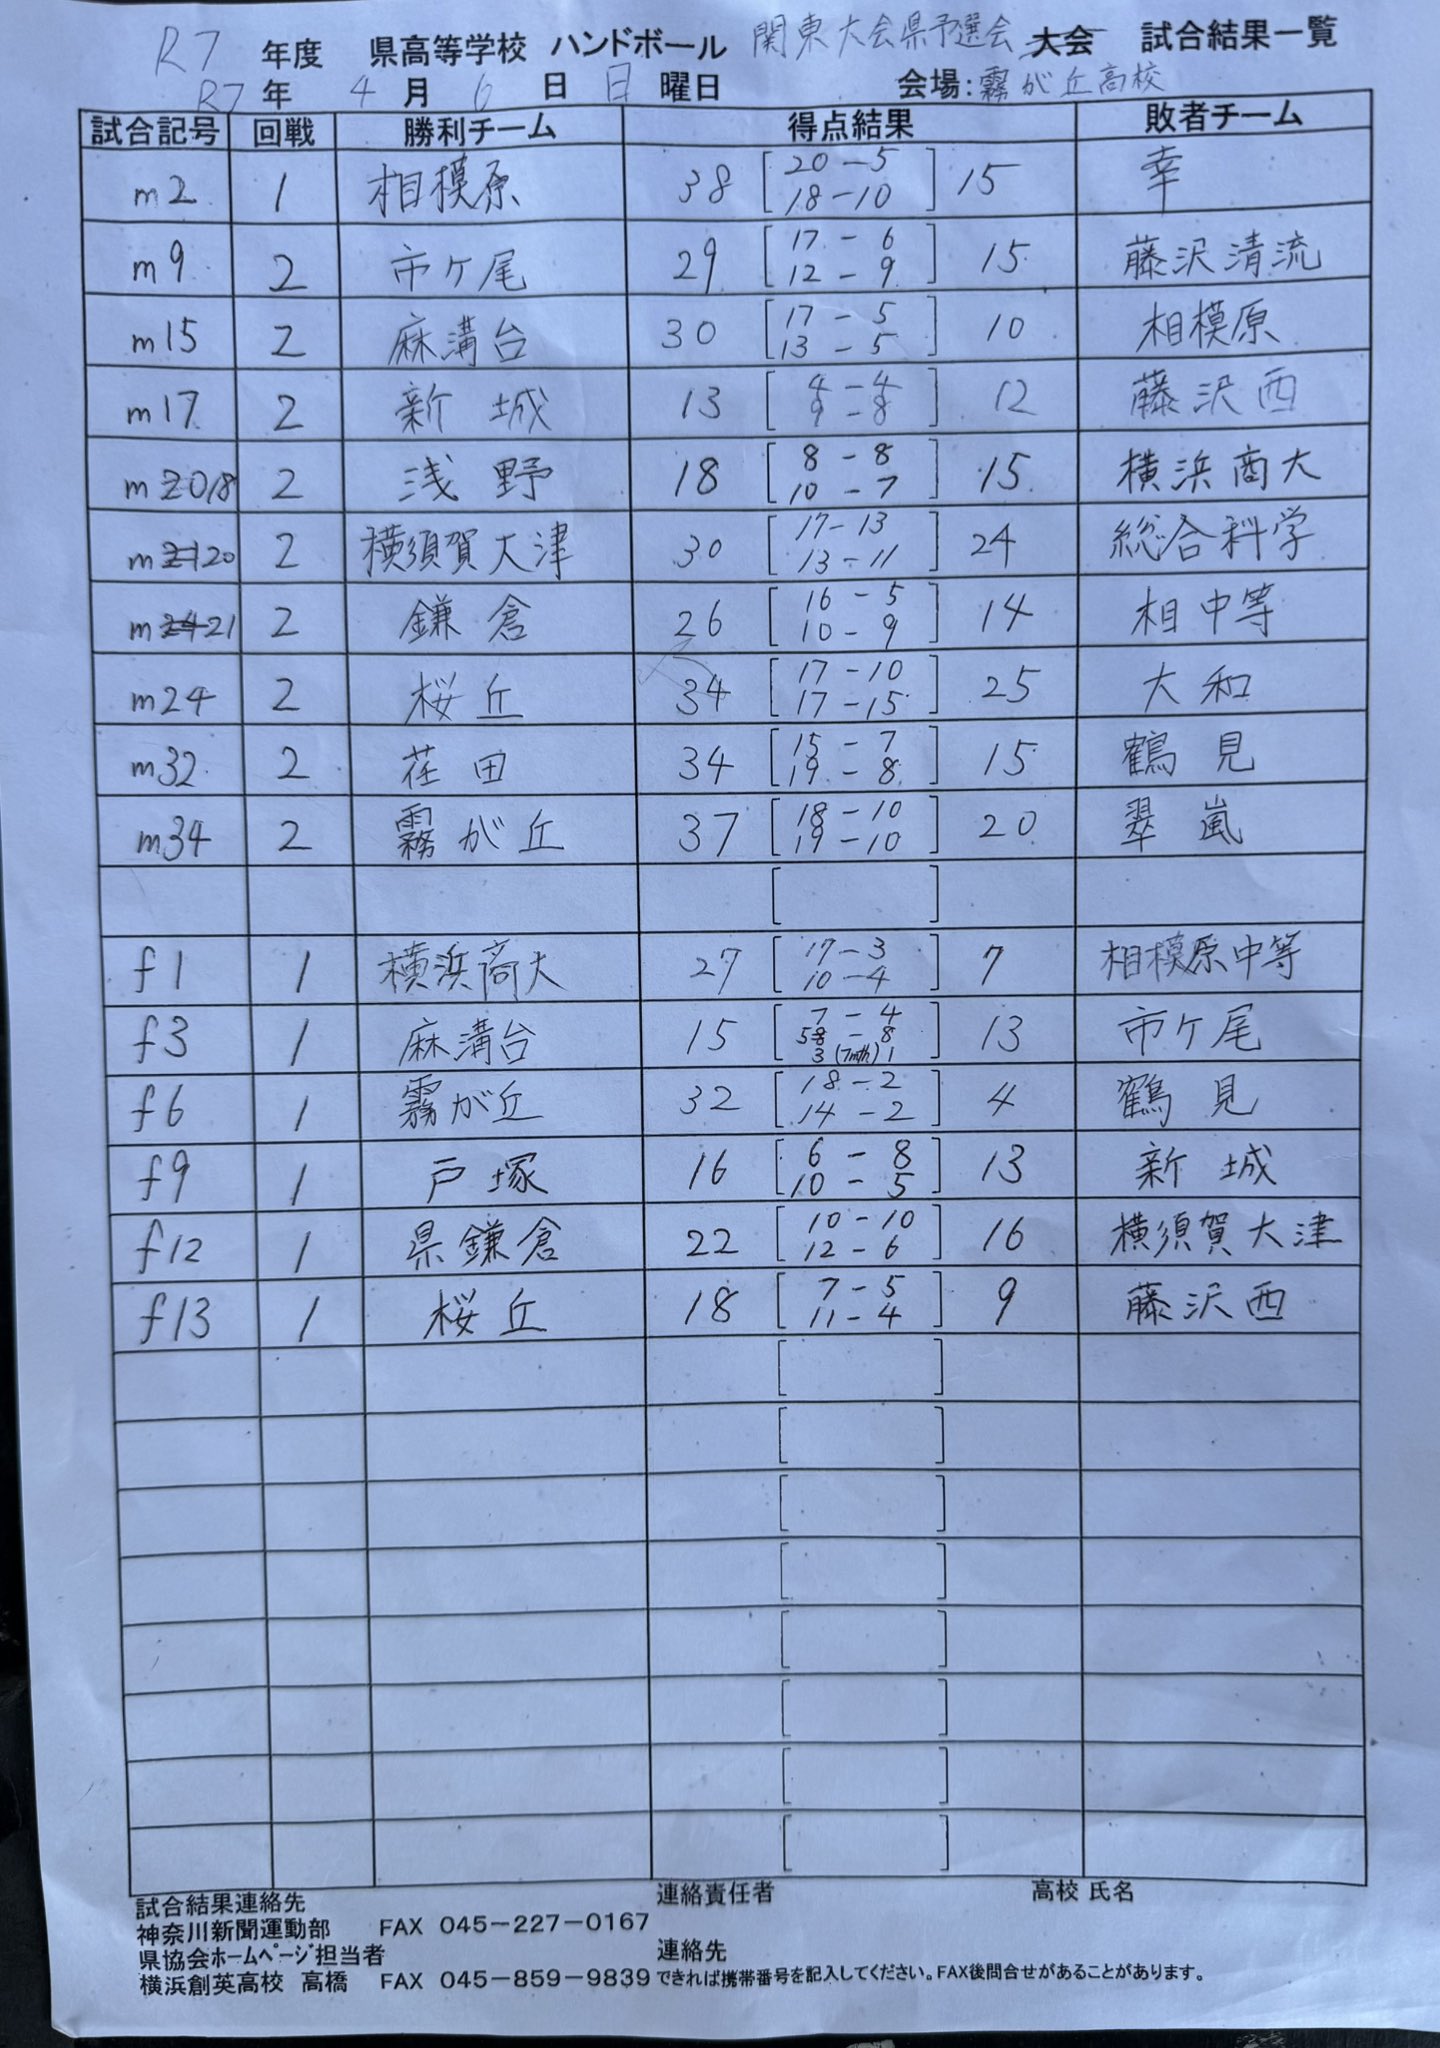 R7 年度 県高等学校 ハンドボール 関東大会県予選会 大会 試合結果一覧
R7 年 4 月 6 日 日 曜日 会場:霧が丘高校
試合記号 回戦 勝利チーム 得点結果 敗者チーム
m2 1 相模原 38 [20-5 18-10] 15 幸
m9 2 市ケ尾 29 [17-6 12-9] 15 藤沢清流
m15 2 麻溝台 30 [17-5 13-5] 10 相模原
m17 2 新城 13 [4-4 9-8] 12 藤沢西
m18 2 浅野 18 [8-8 10-7] 15 横浜商大
m20 2 横須賀大津 30 [17-13 13-11] 24 総合科学
m21 2 鎌倉 26 [16-5 10-9] 14 相中等
m24 2 桜丘 34 [17-10 17-15] 25 大和
m32 2 荏田 34 [15-7 19-8] 15 鶴見
m34 2 霧が丘 37 [18-10 19-10] 20 翠嵐
f1 1 横浜商大 27 [17-3 10-4] 7 相模原中等
f3 1 麻溝台 15 [7-4 5-8 3(7mth)1] 13 市ケ尾
f6 1 霧が丘 32 [18-2 14-2] 4 鶴見
f9 1 戸塚 16 [6-8 10-5] 13 新城
f12 1 県鎌倉 22 [10-10 12-6] 16 横須賀大津
f13 1 桜丘 18 [7-5 11-4] 9 藤沢西
試合結果連絡先 連絡責任者 高校 氏名
神奈川新聞運動部 FAX 045-227-0167
県協会ホームページ担当者 連絡先
横浜創英高校 高橋 FAX 045-859-9839 できれば携帯番号を記入してください。FAX後問合せがあることがあります。